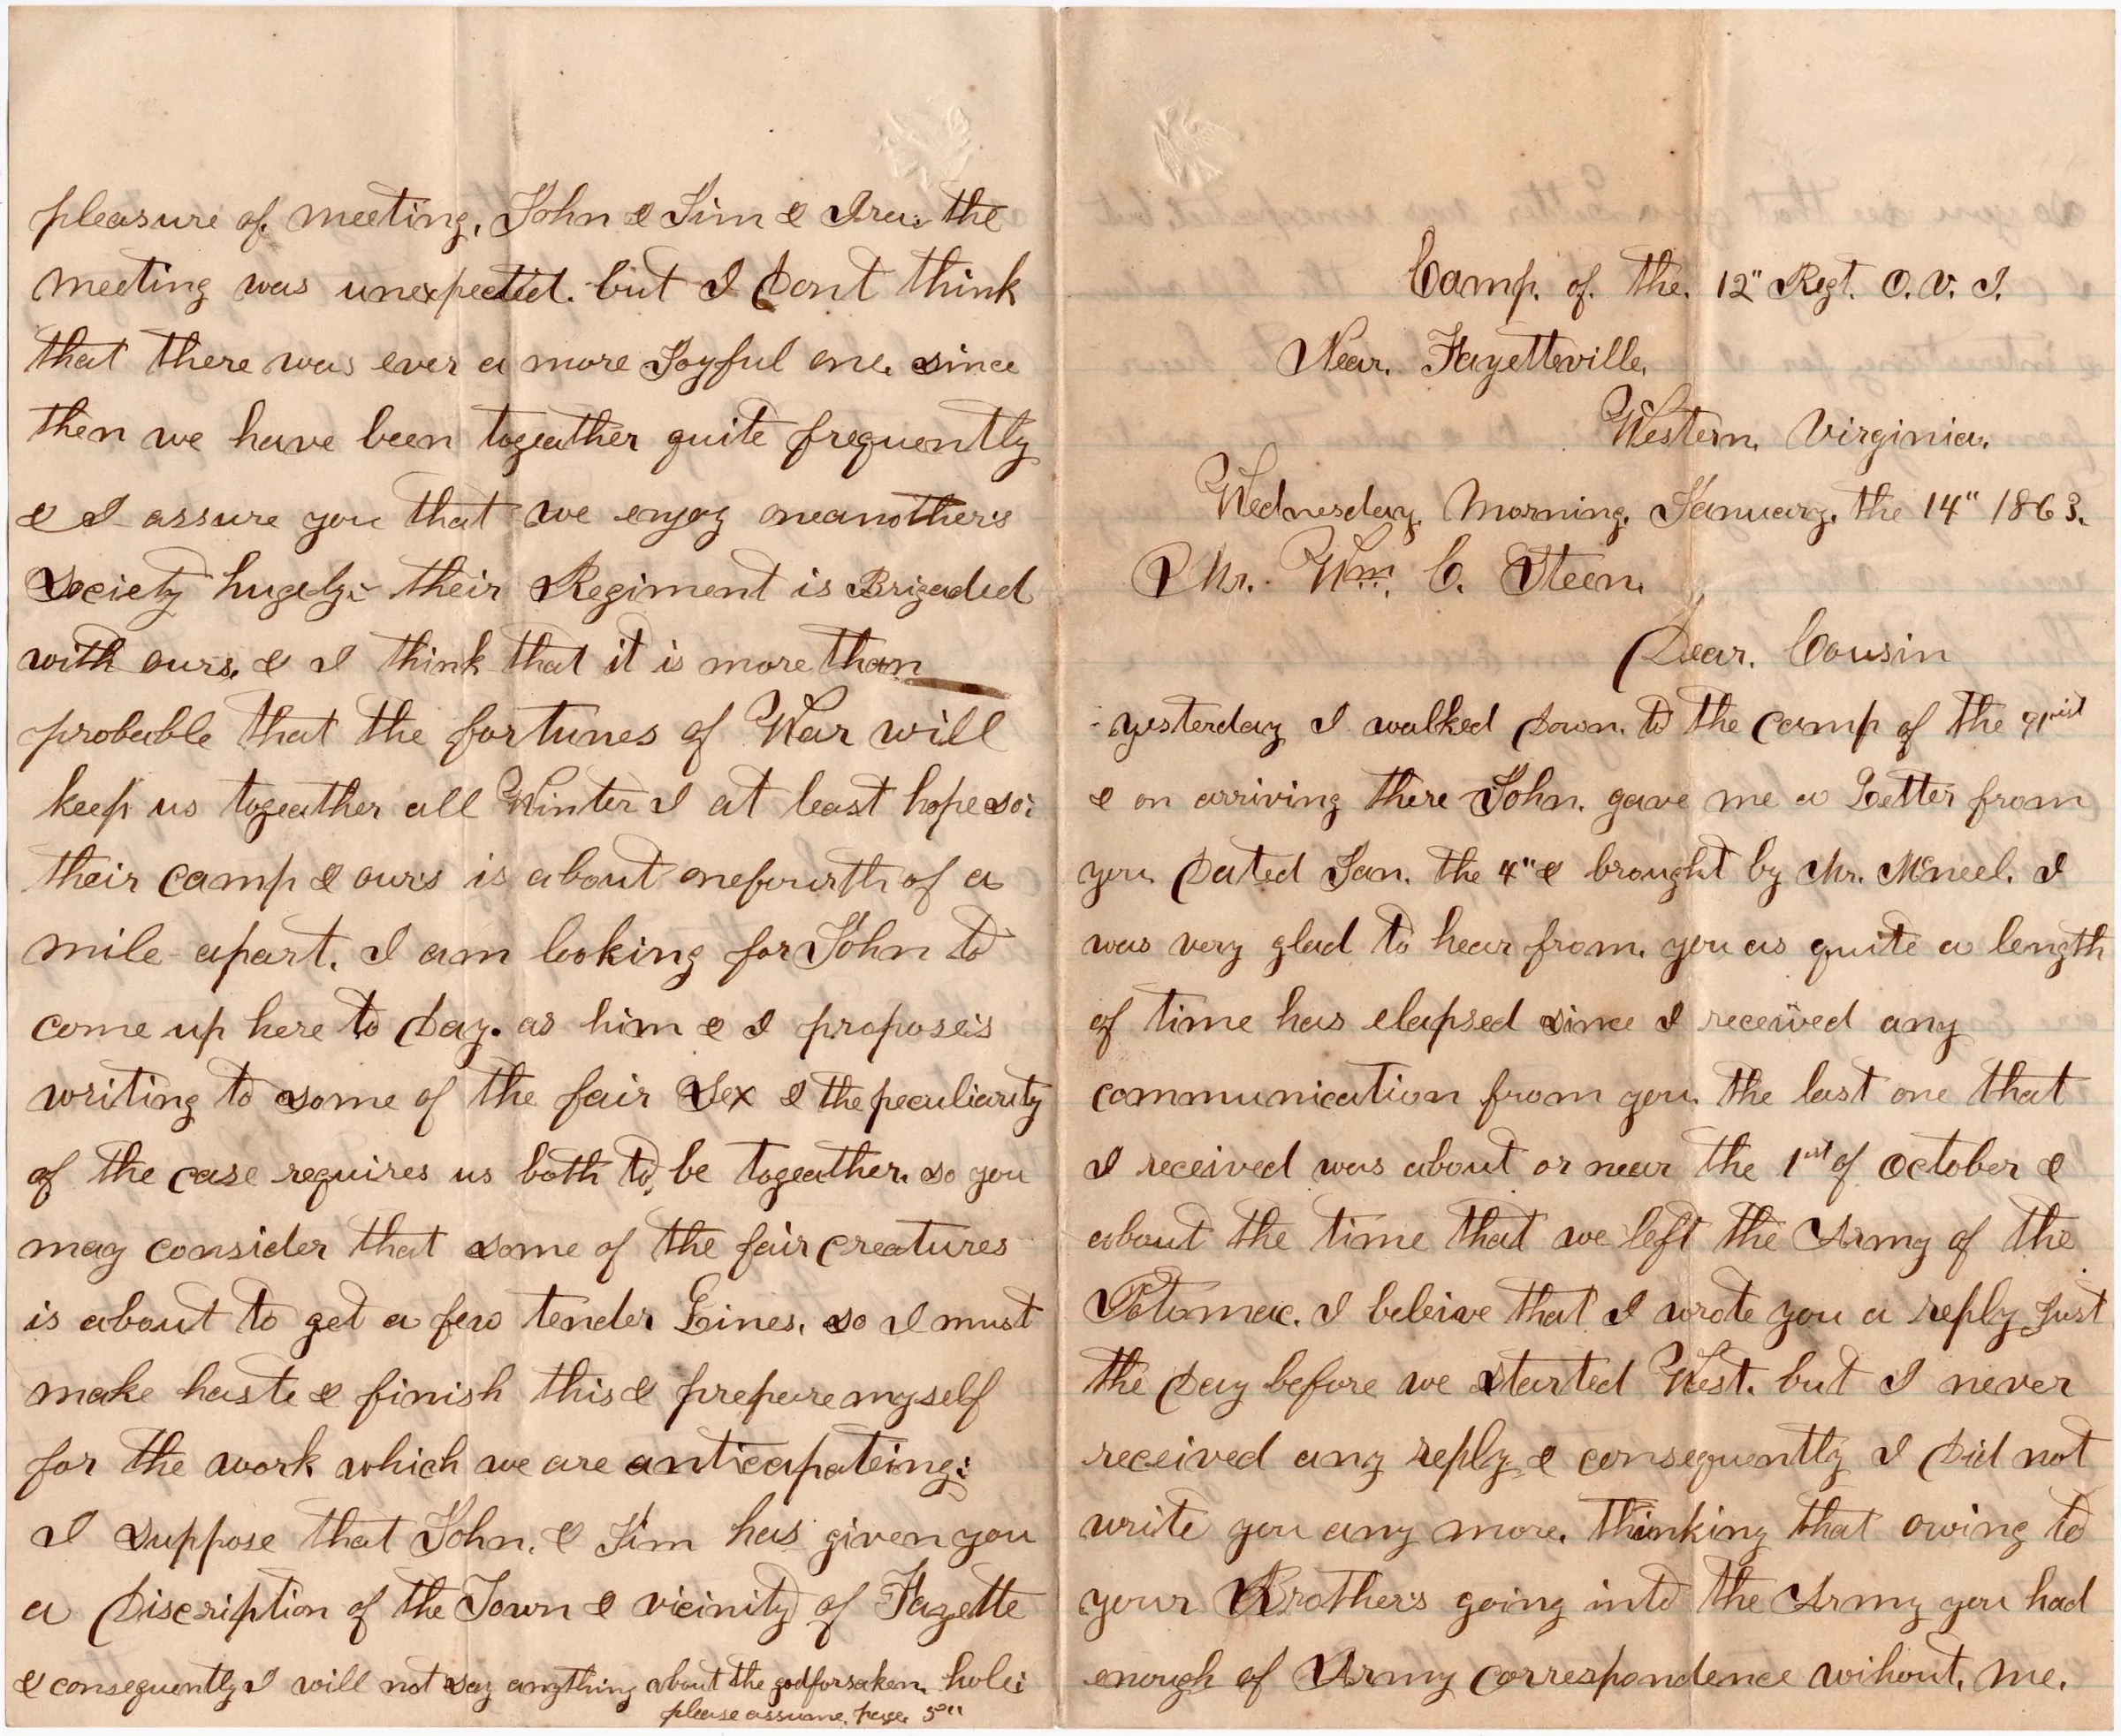 Camp. of. the. 12" Regt. O. V. I.
Near. Fayetteville.
Western. Virginia.
Wednesday. Morning. January. the 14" 1863.
Mr. Wm. C. Steen.
Dear. Cousin
yesterday I walked Down. to the camp of the 91rst
& on arriving there John. gave me a Letter from
you Dated Jan. the 4" & brought by Mr. McNeel. I
was very glad to hear from. you as quite a length
of time has elapsed since I received any
communication from you. the last one that
I received was about or near the 1rst of October &
about the time that we left the Army of the
Potomac. I beleive that I wrote you a reply Just
the Day before we started West. but I never
received any reply & consequently I Did not
write you any more. thinking that owing to
your Brothers going into the Army you had
enough of Army correspondence wihout. me.
pleasure of. meeting. John & Jim & Ira: the
meeting was unexpected. but I Dont think
that there was ever a more Joyful one. since
then we have been togeather quite frequently
& I assure you that we enjoy oneanother's
Society hugely: their Regiment is Brigaded
with ours. & I think that it is more than
probable that the fortunes of War will
keep us togeather all Winter I at least hope so:
their camp & ours is about onefourth of a
mile apart. I am looking for John to
come up here to Day. as him & I propose's
writing to some of the fair Sex & the peculiarity
of the case requires us both to be togeather. so you
may consider that some of the fair creatures
is about to get a few tender Lines. so I must
make haste & finish this & prepare myself
for the work which we are anticapateing:
I suppose that John. & Jim has given you
a Discription of the Town & vicinity of Fayette
& consequently I will not say anything about the godforsaken. hole:
please assume. page. 5"